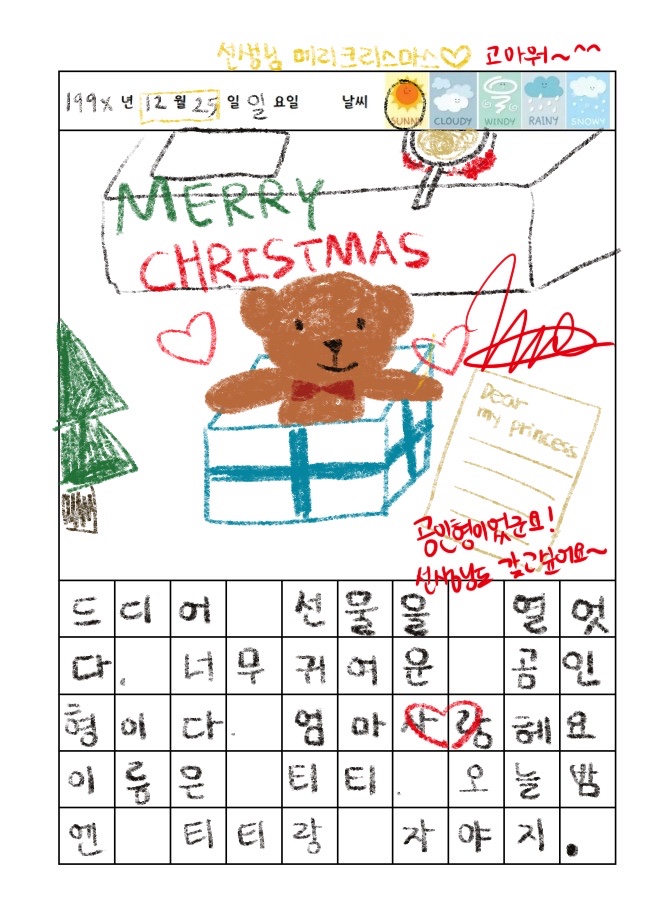 선생님 메리크리스마스♡ 고마워~^^
199x 년 12 월 25 일 일 요일 날씨 SUNNY CLOUDY WINDY RAINY SNOWY
MERRY
CHRISTMAS
Dear
my princess
곰인형이었군요!
선생님도 갖고싶어요~
드디어 선물을 열엇
다. 너무 귀여운 곰인
형이다. 엄마사랑헤요
이룸은 티티. 오늘밤
엔 티티랑 자야지.